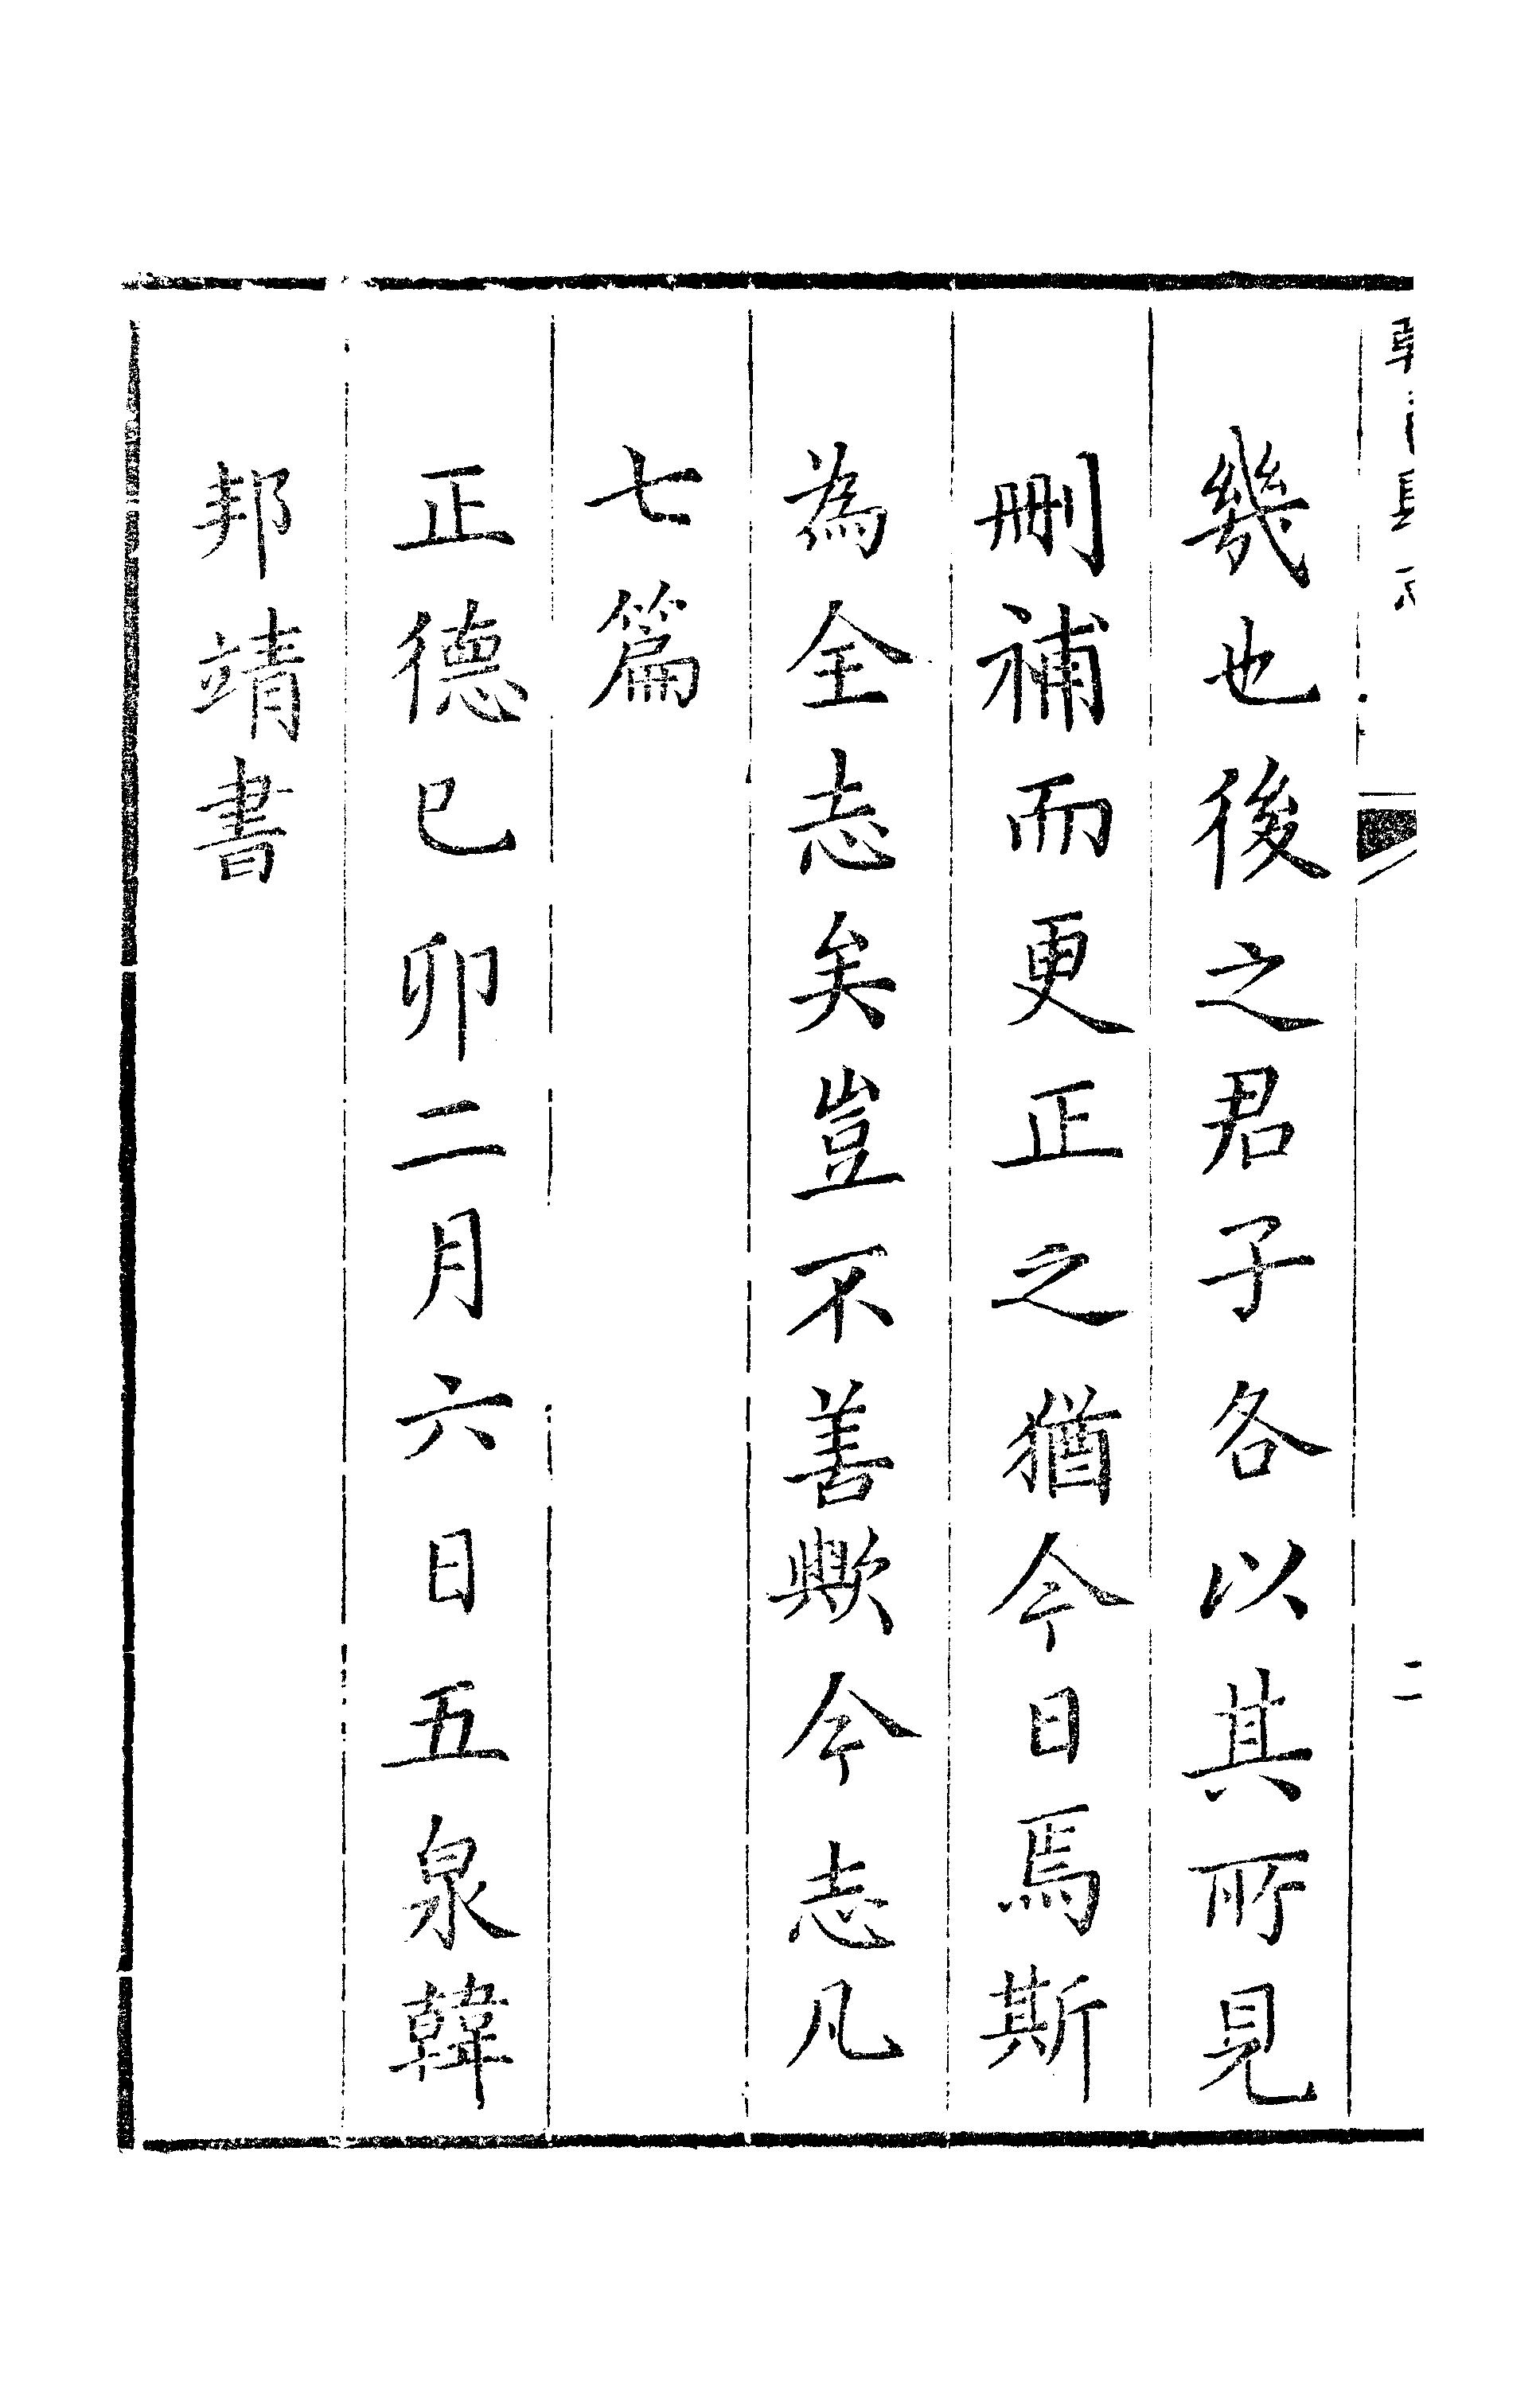 幾也後之君子各以其所見
刪補而更正之猶今日焉斯
為全志矣豈不善歟今志凡
七篇
正德己卯二月六日五泉韓
邦靖書
二